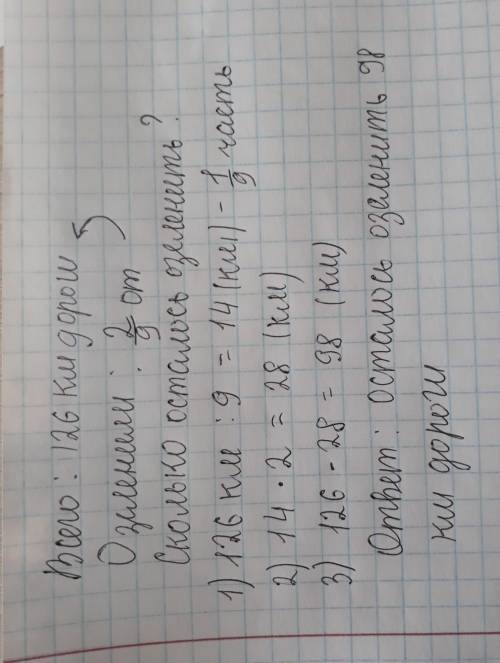 Всего: 126 км дорош
Озаленили : 2/9 от
Сколько осталось озеленить?
1) 126 км : 9 = 14 (км) - 1/9 часть
2) 14 · 2 = 28 (км)
3) 126 - 28 = 98 (км)
Ответ: осталось озаленить 98
км дороги